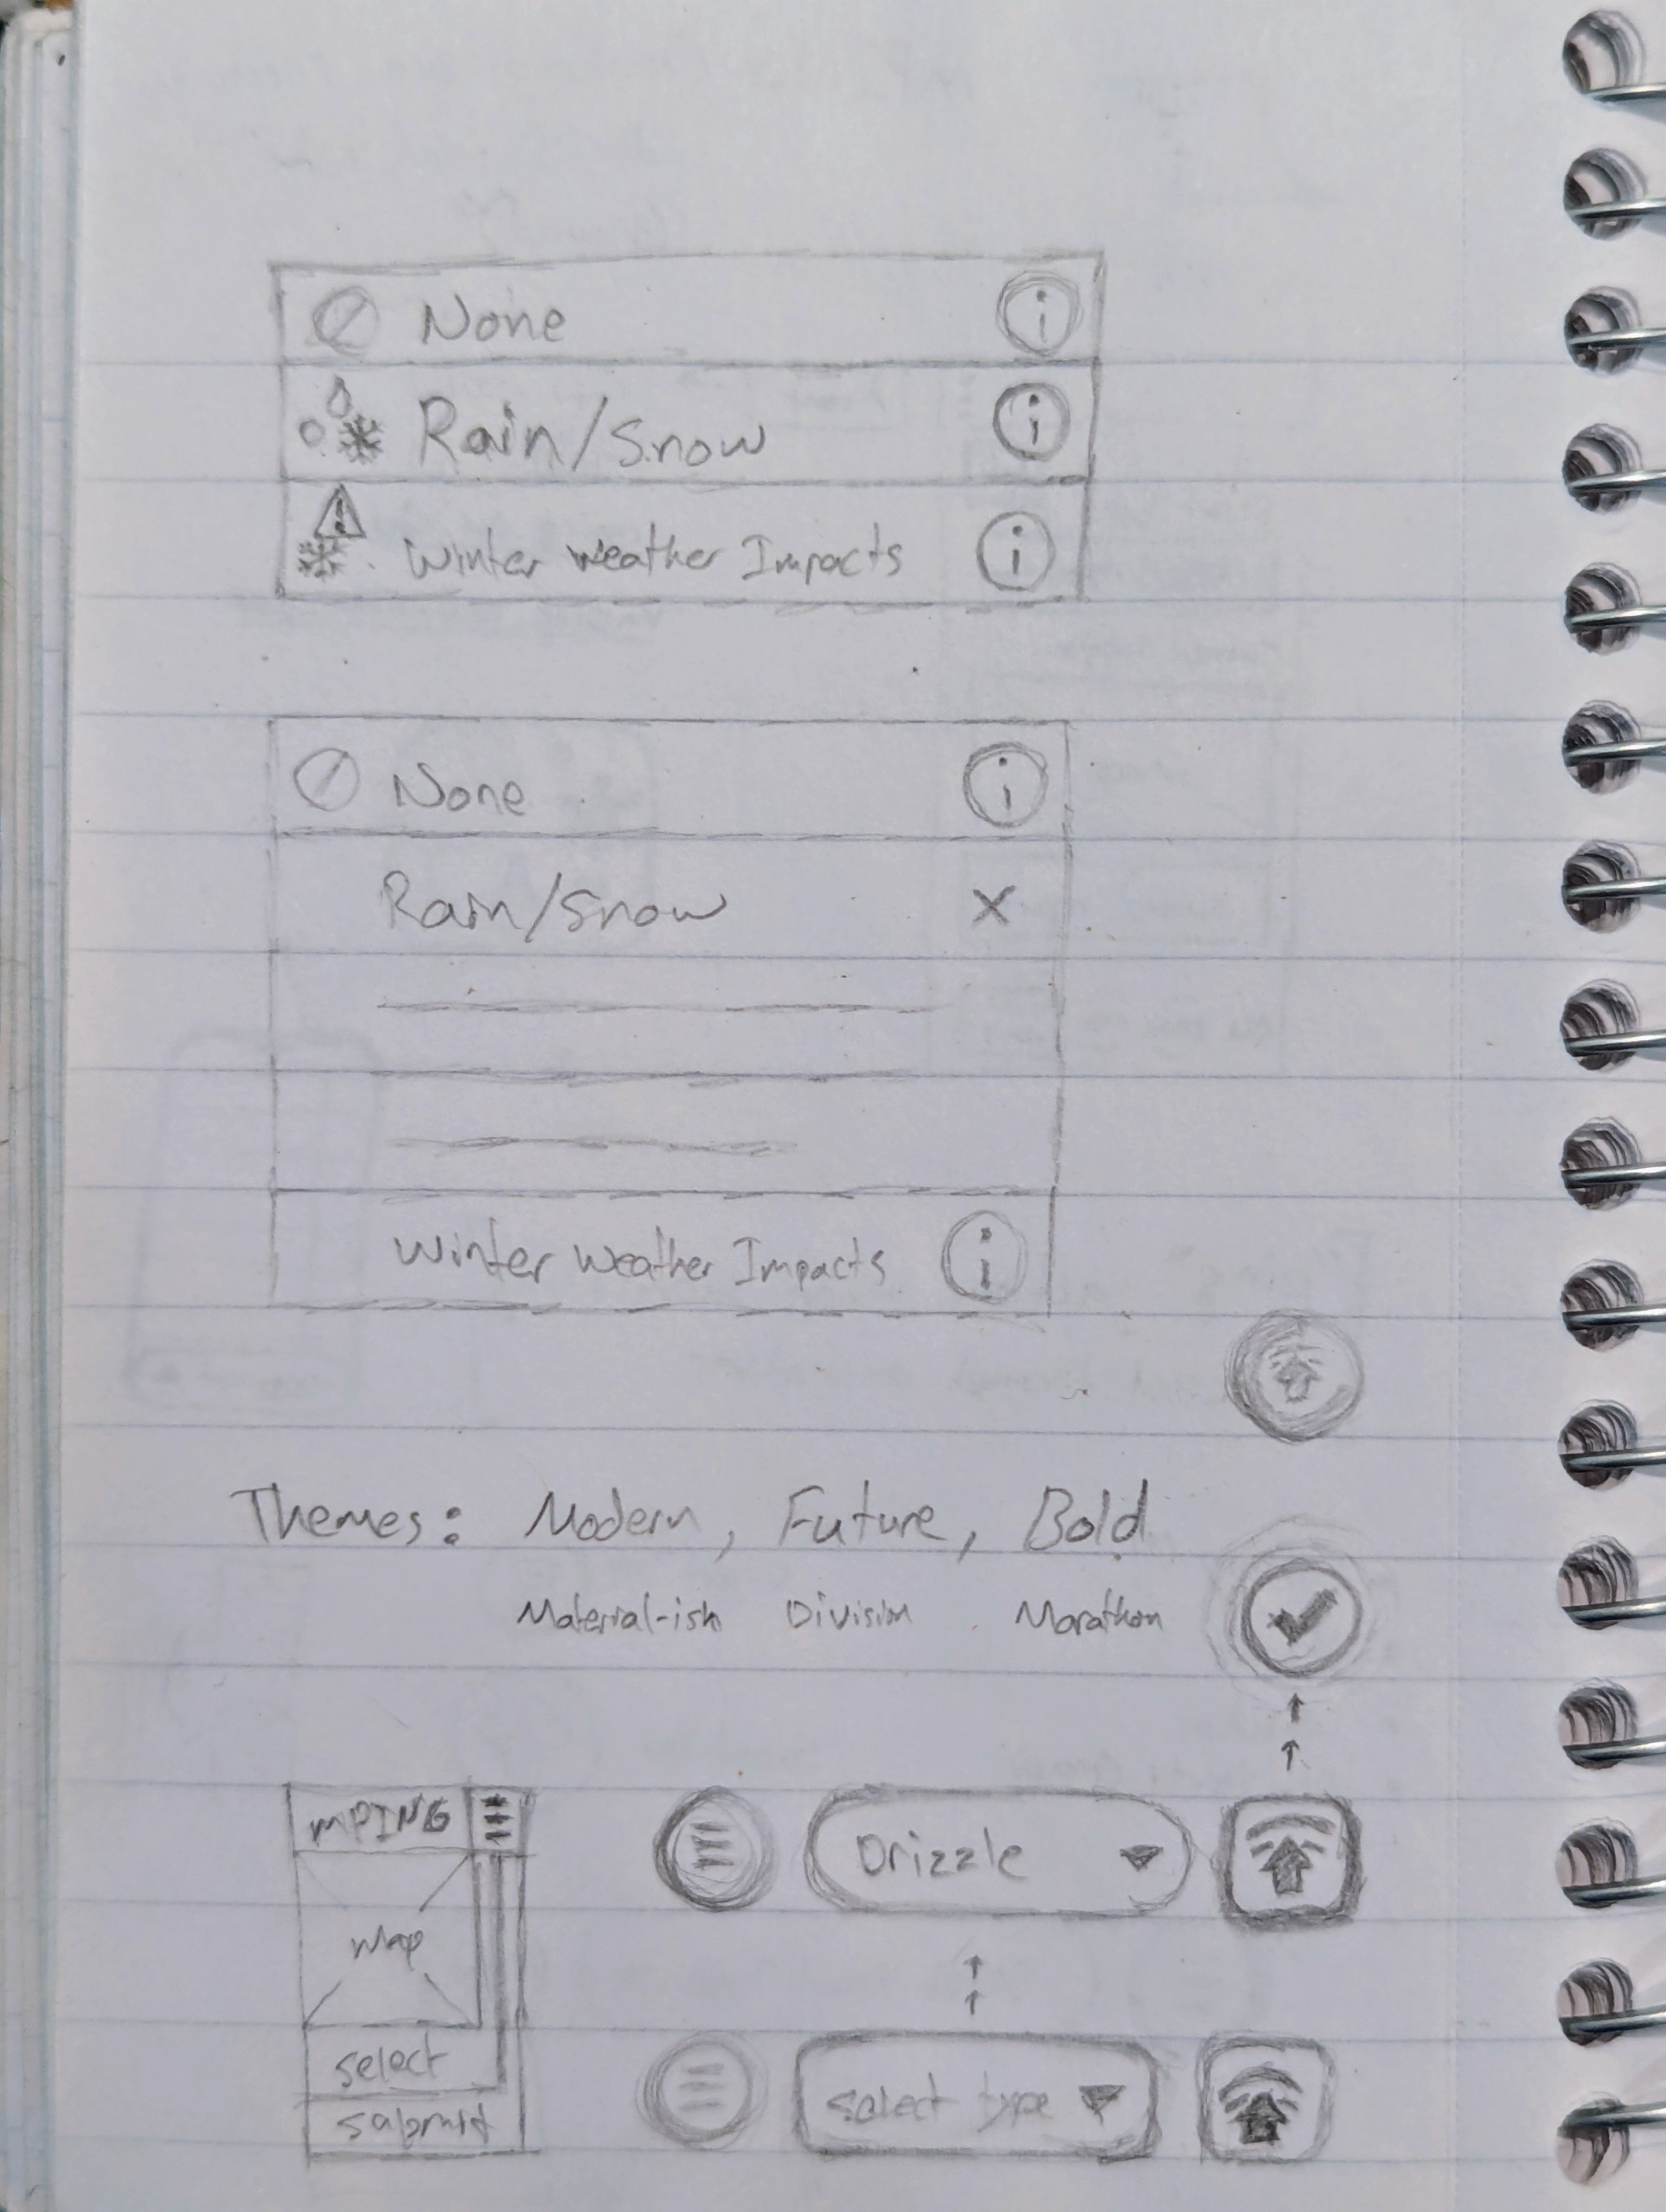 None i
Rain/Snow i
! Winter Weather Impacts i
None i
Rain/Snow X
Winter Weather Impacts i
Themes: Modern, Future, Bold
Material-ish Division Marathon
mPING
Map
select
submit
Drizzle
select type